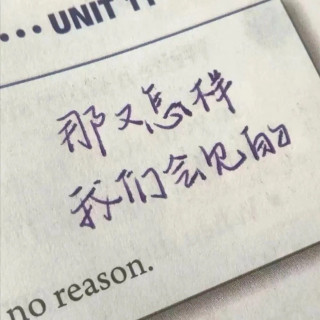 ... UNIT 11
那又怎样
我们会见的
no reason.